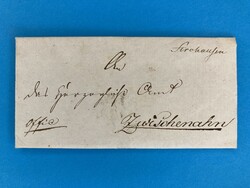 An
das Herzogliche Amt
Offic.
Zwischenahn